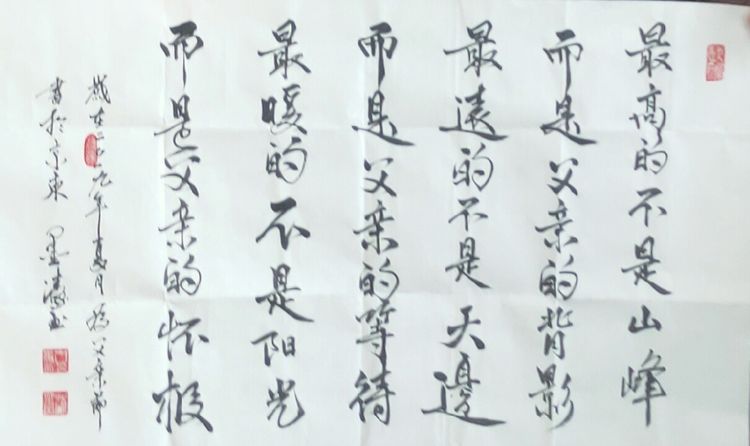 最高的不是山峰
而是父亲的背影
最遠的不是天邊
而是父亲的等待
最暖的不是阳光
而是父亲的怀抱
歲在二〇一九年夏月为父亲节
書於京東